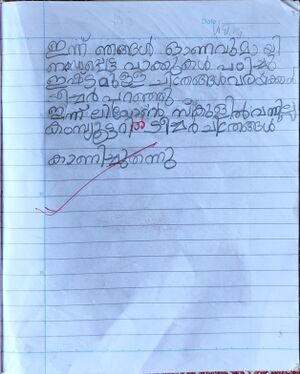 Date
ഇന്ന് ഞങ്ങൾ ഓണവുമായി
ബന്ധപ്പെട്ട വാക്കുകൾ പഠിച്ചു
ഇഷ്ടമുള്ള ചിത്രങ്ങൾവരയ്ക്കാൻ
ടീച്ചർ പറഞ്ഞു
ഇന്ന് ലിയോൺ സ്കൂളിൽവന്നില്ല
കമ്പ്യൂട്ടറിൽ ടീച്ചർ ചിത്രങ്ങൾ
കാണിച്ചുതന്നു